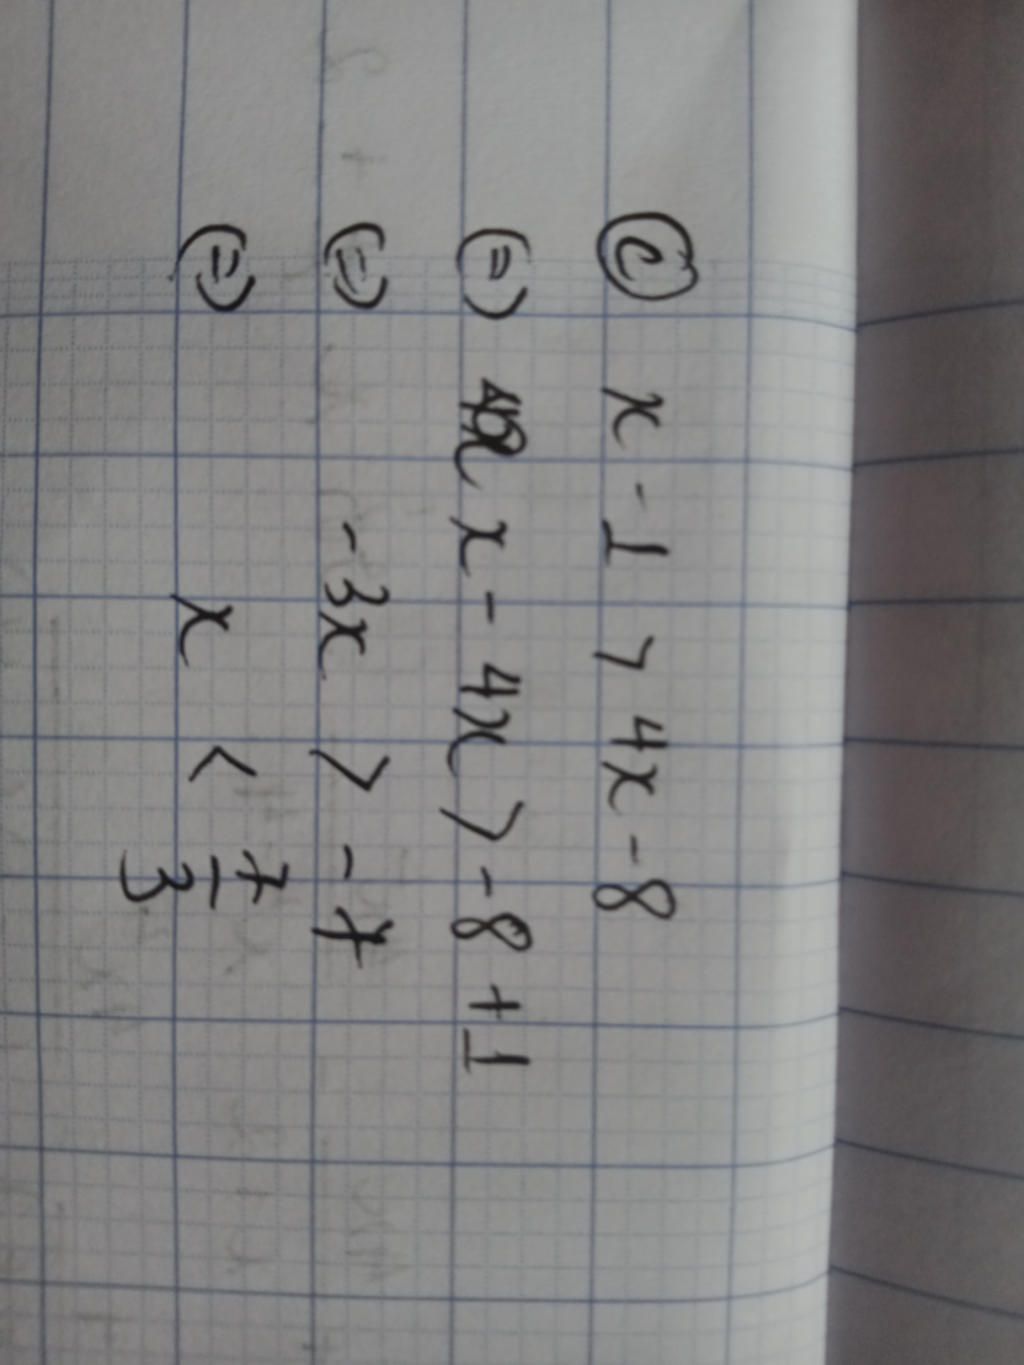 c) x - 1 > 4x - 8
(=) x - 4x > -8 + 1
(=) -3x > -7
(=) x < 7/3